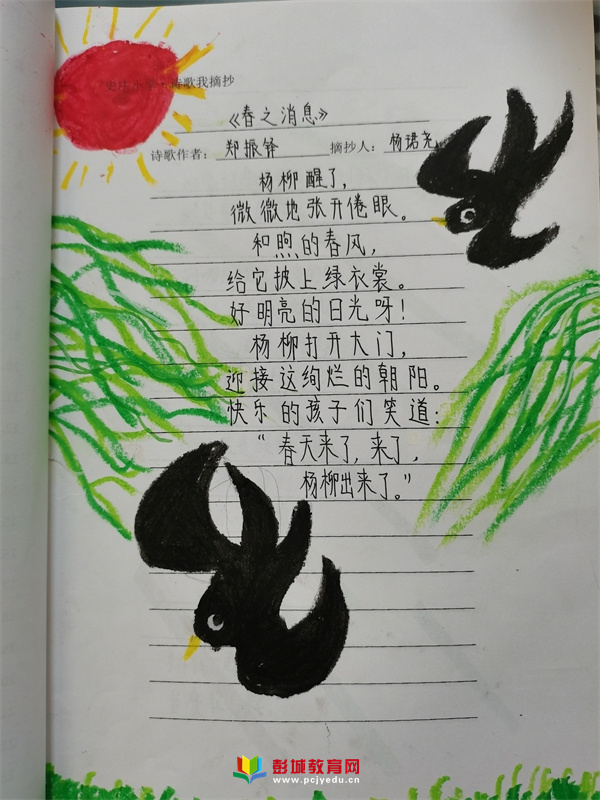 诗歌我摘抄
《春之消息》
诗歌作者：郑振铎 摘抄人：杨珺尧
杨柳醒了，
微微地张开倦眼。
和煦的春风，
给它披上绿衣裳。
好明亮的日光呀！
杨柳打开大门，
迎接这绚烂的朝阳。
快乐的孩子们笑道：
“春天来了，来了，
杨柳出来了。”
彭城教育网
www.pcjyedu.cn